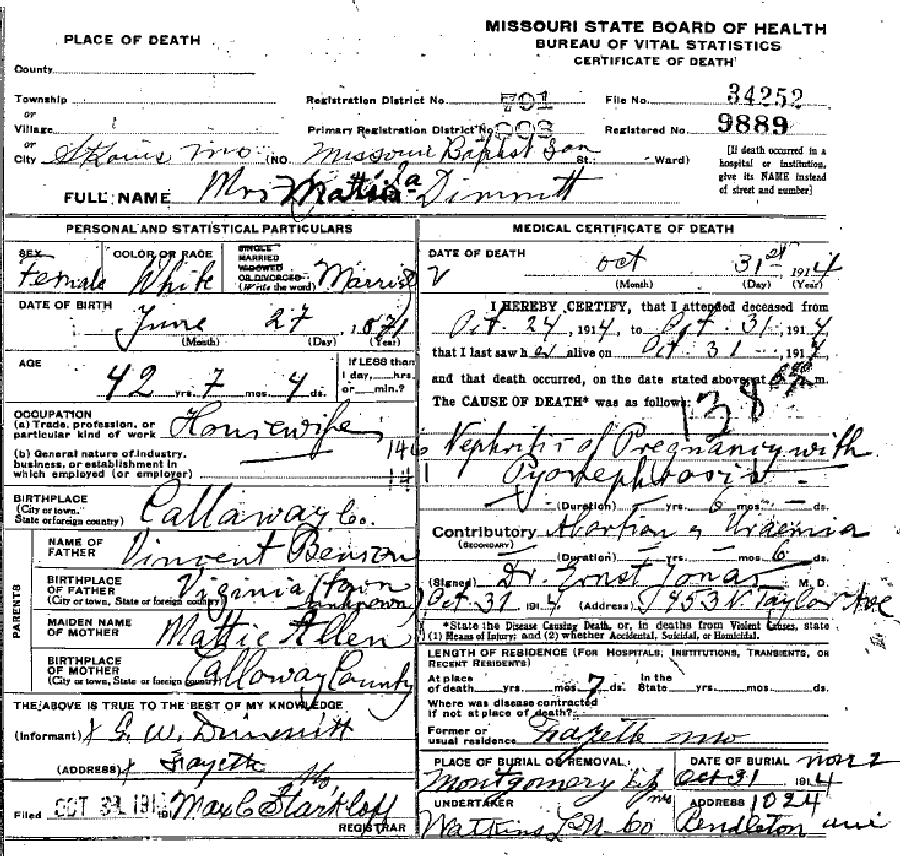 MISSOURI STATE BOARD OF HEALTH
BUREAU OF VITAL STATISTICS
CERTIFICATE OF DEATH
PLACE OF DEATH
County
Township
or
Village
or
City St Louis, Mo. (NO. Missouri Baptist San St. Ward)
Registration District No. 701
Primary Registration District No. 1003
File No. 34252
Registered No. 9889
[If death occurred in a hospital or institution, give its NAME instead of street and number]
FULL NAME Mrs Dimmitt
PERSONAL AND STATISTICAL PARTICULARS
SEX Female
COLOR OR RACE White
SINGLE MARRIED WIDOWED OR DIVORCED (Write the word) Married
DATE OF BIRTH June 27, 1871
(Month) (Day) (Year)
AGE 42 yrs. 7 mos. 4 ds.
If LESS than 1 day, hrs. or min.?
OCCUPATION
(a) Trade, profession, or particular kind of work Housewife
(b) General nature of industry, business, or establishment in which employed (or employer)
BIRTHPLACE
(City or town, State or foreign country) Callaway Co.
PARENTS
NAME OF FATHER Vincent Benson
BIRTHPLACE OF FATHER
(City or town, State or foreign country) Virginia (town unknown)
MAIDEN NAME OF MOTHER Mattie Allen
BIRTHPLACE OF MOTHER
(City or town, State or foreign country) Calloway County
THE ABOVE IS TRUE TO THE BEST OF MY KNOWLEDGE
(Informant) G. W. Dimmitt
(ADDRESS) Fayette Mo
Filed OCT 31 191 Max C Starkloff
REGISTRAR
MEDICAL CERTIFICATE OF DEATH
DATE OF DEATH Oct 31st 1914
(Month) (Day) (Year)
I HEREBY CERTIFY, that I attended deceased from
Oct. 24, 1914, to Oct. 31, 1914
that I last saw her alive on Oct. 31, 1914
and that death occurred, on the date stated above, at m.
The CAUSE OF DEATH* was as follows:
138
146
Nephritis of Pregnancy with
Pyonephrosis
(Duration) yrs. 6 mos. ds.
Contributory Abortion & Uraemia
(SECONDARY)
(Duration) yrs. mos. 6 ds.
(Signed) Dr. Ernst Jonas M. D.
Oct 31 1914 (Address) 1453 N Taylor Ave
*State the Disease Causing Death, or, in deaths from Violent Causes, state (1) Means of Injury; and (2) whether Accidental, Suicidal, or Homicidal.
LENGTH OF RESIDENCE (For Hospitals, Institutions, Transients, or Recent Residents)
At place of death yrs. mos. 7 ds. In the State yrs. mos. ds.
Where was disease contracted
if not at place of death?
Former or usual residence Fayette Mo
PLACE OF BURIAL OR REMOVAL Montgomery City Mo
DATE OF BURIAL Nov 2 Oct 31 1914
UNDERTAKER Watkins L & U Co
ADDRESS 1024 Pendleton Ave